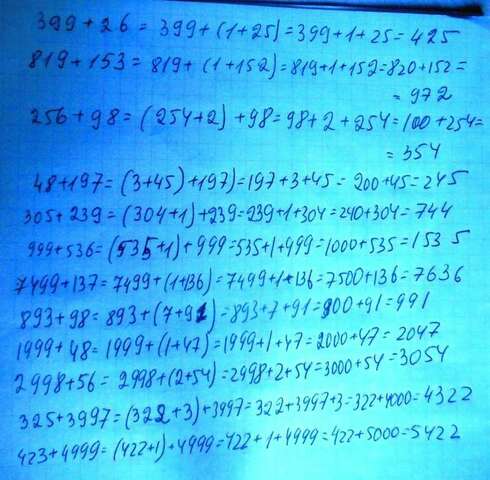 399+26 = 399+(1+25)=399+1+25=425
819+153=819+(1+152)=819+1+152=820+152=
=972
256+98=(254+2)+98=98+2+254=100+254=
=354
48+197=(3+45)+197)=197+3+45=200+45=245
305+239=(304+1)+239=239+1+304=240+304=744
999+536=(535+1)+999=535+1+999=1000+535=1535
7499+137=7499+(1+136)=7499+1+136=7500+136=7636
893+98=893+(7+91)=893+7+91=900+91=991
1999+48=1999+(1+47)=1999+1+47=2000+47=2047
2998+56=2998+(2+54)=2998+2+54=3000+54=3054
325+3997=(322+3)+3997=322+3997+3=322+4000=4322
423+4999=(422+1)+4999=422+1+4999=422+5000=5422